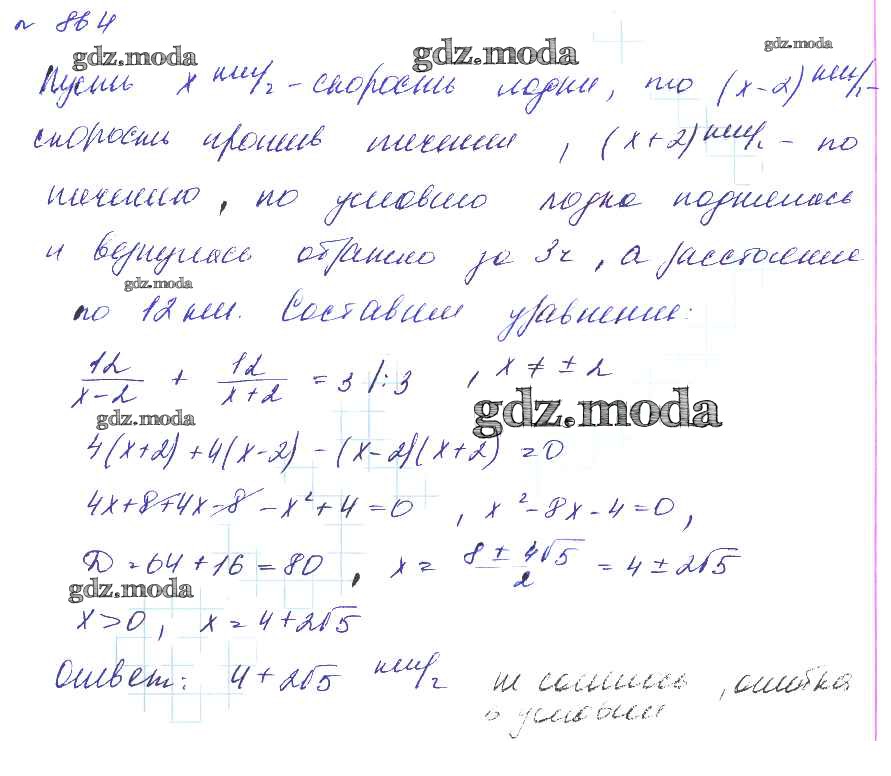 № 864
gdz.moda gdz.moda gdz.moda
Пусть x км/ч – скорость лодки, то (x-2) км/ч –
скорость против течения, (x+2) км/ч – по
течению, по условию лодка поднялась
и вернулась обратно за 3ч, а расстояние
gdz.moda
по 12 км. Составим уравнение:
12/(x-2) + 12/(x+2) = 3 |:3 , x ≠ ± 2
gdz.moda gdz.moda
4(x+2)+4(x-2) - (x-2)(x+2) = 0
4x+8+4x-8 - x² + 4 = 0 , x² - 8x - 4 = 0,
D = 64 + 16 = 80 , x = (8 ± 4√5)/2 = 4 ± 2√5
gdz.moda
x > 0, x = 4 + 2√5
Ответ: 4 + 2√5 км/ч не сошлись, ошибка
в условии